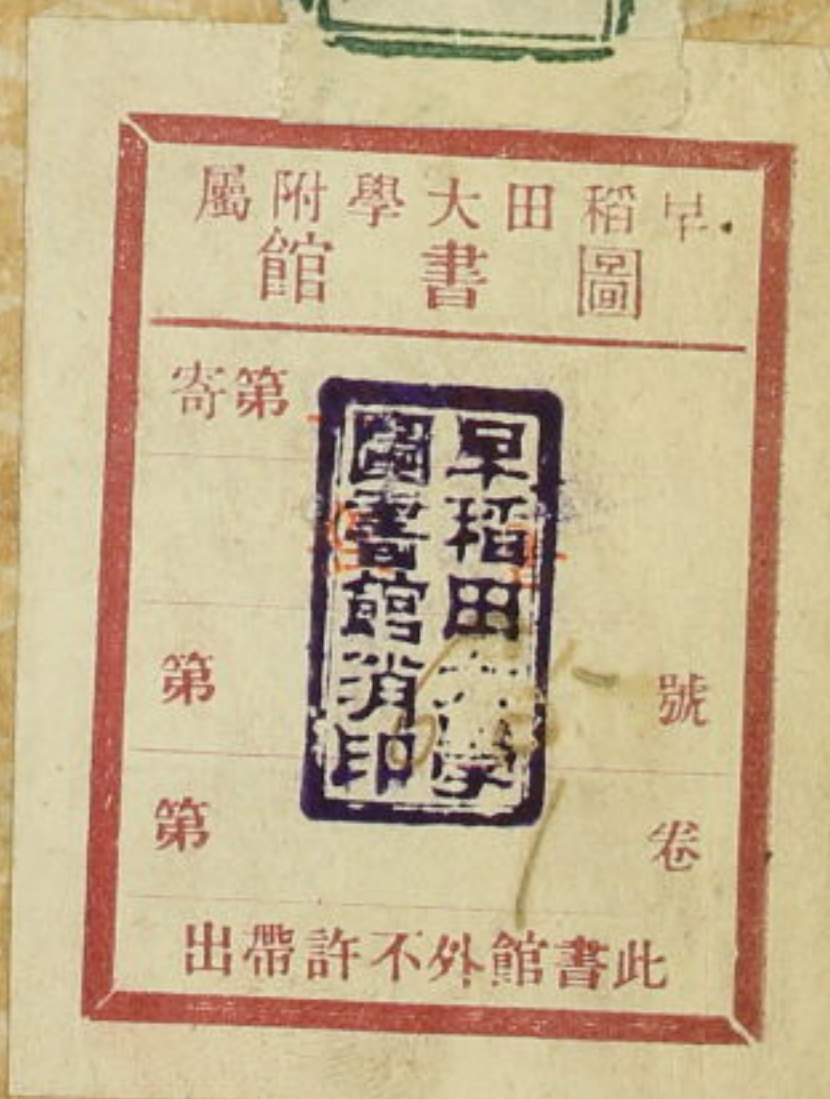 早稻田大學附屬
圖書館
寄第
早稻田大學
圖書館消印
第 號
第 卷
此書館外不許帶出